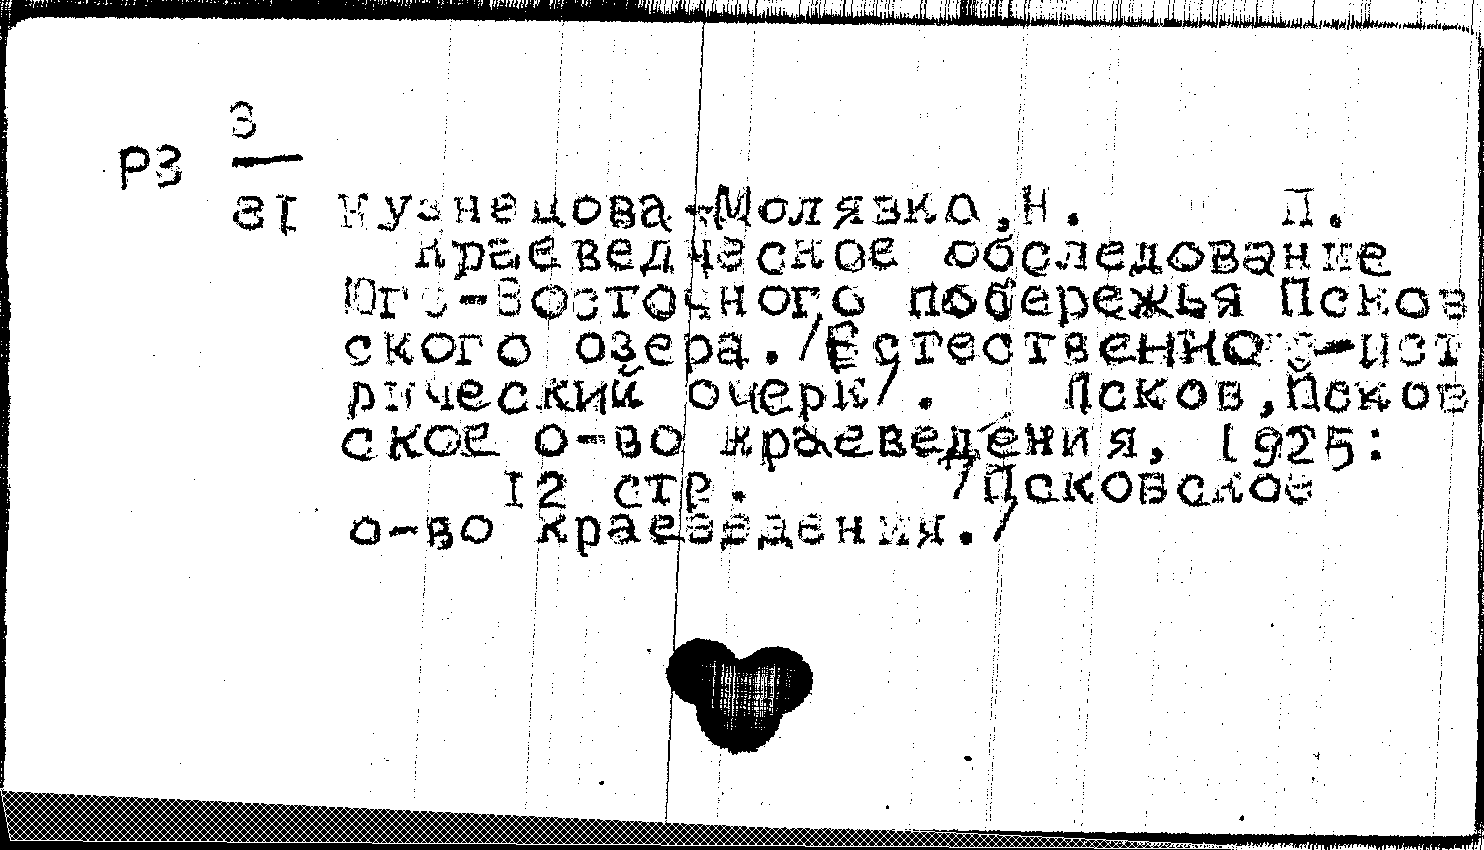 З
Р3
Кузнецова-Молявко,Н. П.
Краеведческое обследование
Юго-Восточного побережья Псков
ского озера./Естественно-ист
рический очерк/. Псков,Псков
ское о-во краеведения, 1925:
12 стр. /Псковское
о-во краеведения./